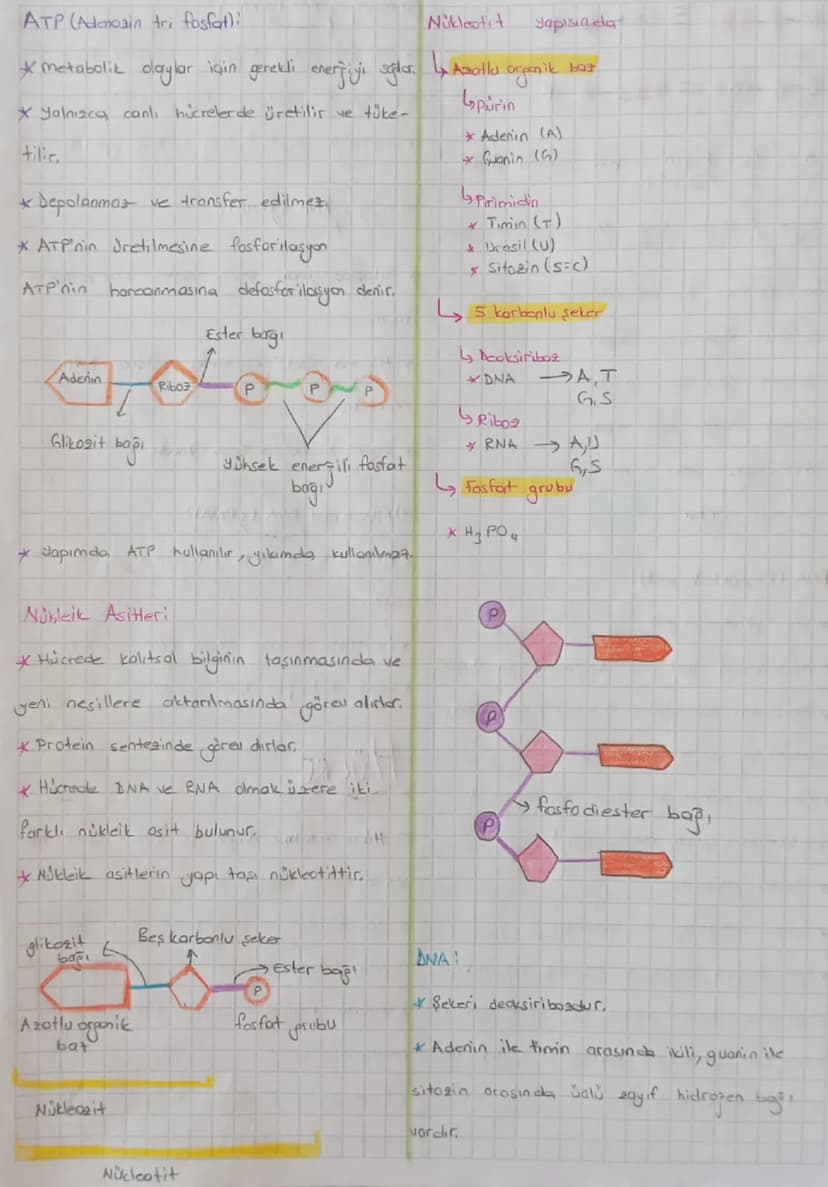 ATP (Adenozin tri fosfat):
* metabolik olaylar için gerekli enerjiyi sağlar.
* Yalnızca canlı hücrelerde üretilir ve tüke-
tilir.
* Depolanmaz ve transfer edilmez.
* ATP'nin üretilmesine fosforilasyon
ATP'nin harcanmasına defosforilasyon denir.
Ester bağı
Adenin
Riboz
P
P
P
Glikozit bağı
yüksek energili fosfat
bağı
* Yapımda ATP kullanılır, yıkımda kullanılmaz.
Nükleik Asitleri
* Hücrede kalıtsal bilginin taşınmasında ve
yeni nesillere aktarılmasında görev alırlar.
* Protein sentezinde görev alırlar.
* Hücrede DNA ve RNA olmak üzere iki
farklı nükleik asit bulunur.
* Nükleik asitlerin yapı taşı nükleotittir.
glikozit
bağı
Beş karbonlu şeker
Ester bağı
P
Azotlu organik
baz
fosfat grubu
Nükleozit
Nükleotit
Nükleotit yapısında
Azotlu organik baz
Pürin
* Adenin (A)
* Guanin (G)
Pirimidin
* Timin (T)
* Urasil (U)
* Sitozin (S=C)
5 karbonlu şeker
Deoksiriboz
* DNA → A, T
G, S
Riboz
* RNA → A, U
G, S
Fosfat grubu
* H3PO4
P
P
fosfodiester bağı
P
DNA:
* Şekeri deoksiribozdur.
* Adenin ile timin arasında ikili, guanin ile
sitozin arasında üçlü zayıf hidrojen bağı
vardır.